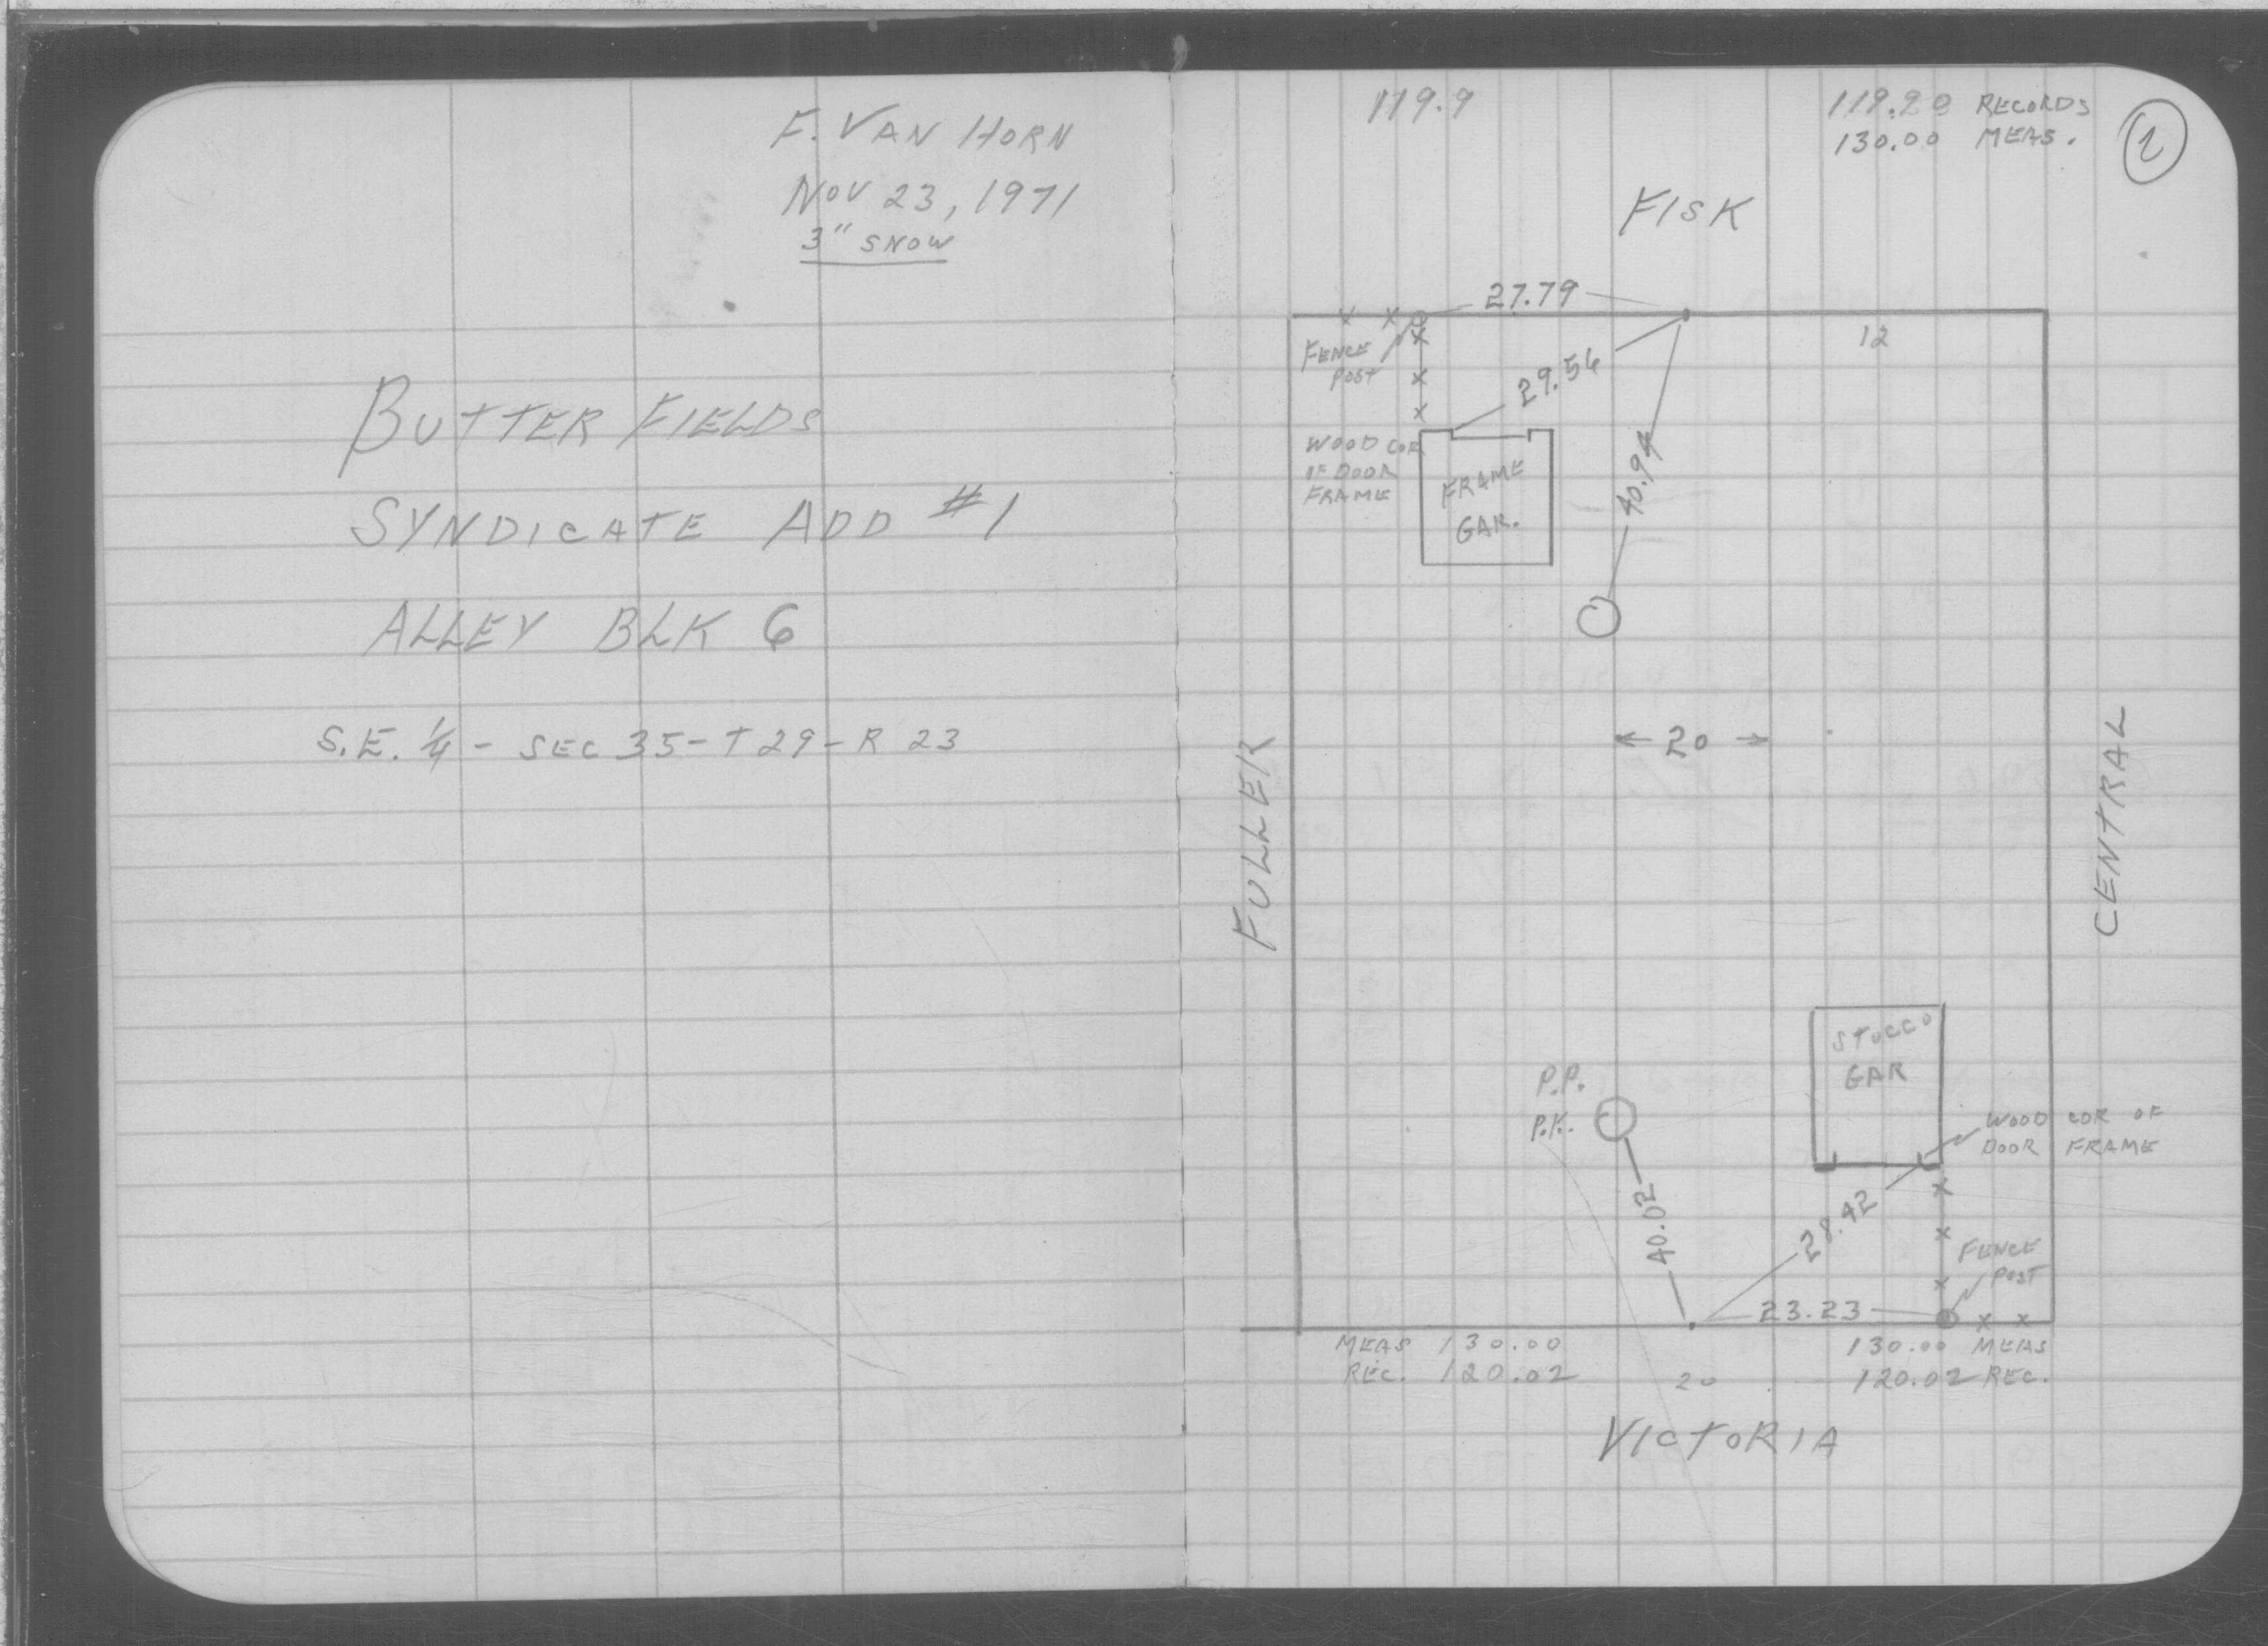 F. VAN HORN
NOV 23, 1971
3" SNOW
BUTTER FIELDS
SYNDICATE ADD #1
ALLEY BLK 6
S.E. 1/4 - SEC 35 - T 29 - R 23
119.9
RECORDS
130.00 MEAS.
1
FISK
27.79
12
FENCE
POST
29.54
40.94
WOOD COR
OF DOOR
FRAME
FRAME
GAR.
FULLER
← 20 →
CENTRAL
STUCCO
GAR
P.P.
P.K.
WOOD COR OF
DOOR FRAME
40.02
28.42
FENCE
POST
23.23
MEAS 130.00
REC. 120.02
20
130.00 MEAS
120.02 REC.
VICTORIA